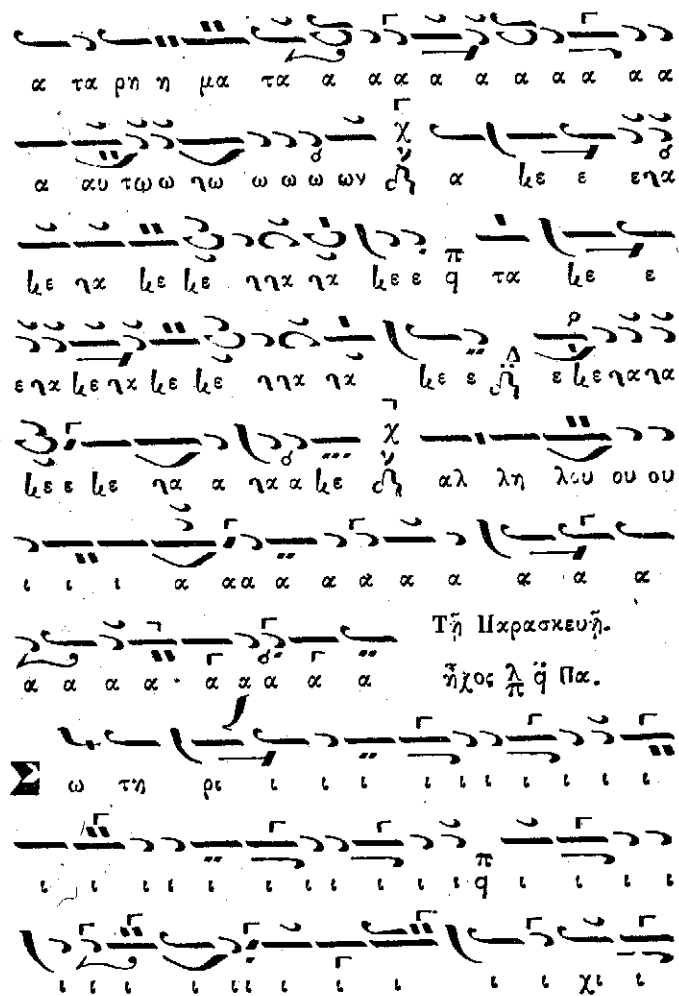 α τα ρη η μα τα α α α α α α α α α α
α αυ τω ω ηω ω ω ω ων α κε ε ε ηα
κε ηα κε κε ηηα ηα κε ε π q τα κε ε
ε ηα κε ηα κε κε ηηα ηα κε ε Δ ε κε ηα ηα
κε ε κε ηα α ηα α κε αλ λη λου ου ου
ι ι ι α α α α α α α α α α α
α α α α α α α α α Τῇ Παρασκευῇ.
ἦχος λ π q Πα.
Σ ω τη ρι ι ι ι ι ι ι ι ι ι ι
ι ι ι ι ι ι ι ι ι ι ι π q ι ι ι ι
ι ι ι ι ι ι ι ι ι ι ι χι ι